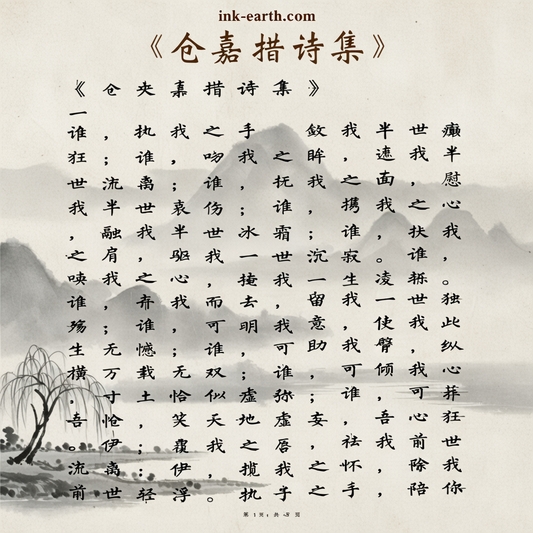 ink-earth.com
《仓嘉措诗集》
《仓央嘉措诗集》
一
谁，执我之手，敛我半世癫
狂；谁，吻我之眸，遮我半
世流离；谁，抚我之面，慰
我半世哀伤；谁，携我之心
，融我半世冰霜；谁，扶我
之肩，驱我一世沉寂。谁，
唤我之心，掩我一生凌轹。
谁，弃我而去，留我一世独
殇；谁，可明我意，使我此
生无憾；谁，可助我臂，纵
横万载无双；谁，可倾我心
，寸土恰似虚弥；谁，可葬
吾怆，笑天地虚妄，吾心狂
。伊，覆我之唇，祛我前世
流离；伊，揽我之怀，除我
前世轻浮。执子之手，陪你